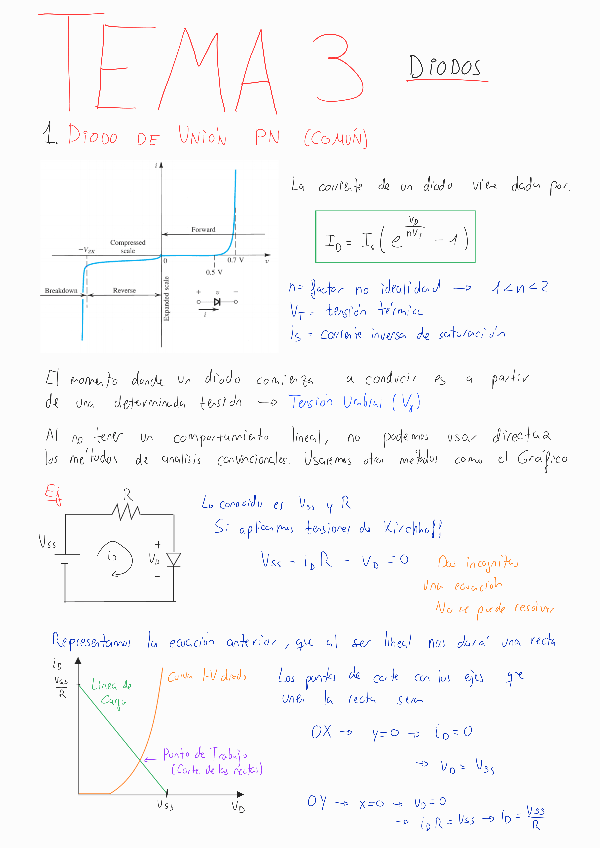 TEMA 3 DIODOS
1. DIODO DE UNIÓN PN (COMÚN)
i
Forward
Compressed scale
-V_ZK
0
0.7 V
v
0.5 V
Breakdown
Reverse
Expanded scale
+ -
i
La corriente de un diodo viene dada por:
I_D = I_s ( e^(V_D/nV_T) - 1 )
n = factor no idealidad → 1 < n < 2
V_T = tensión térmica
i_s = corriente inversa de saturación
El momento donde un diodo comienza a conducir es a partir
de una determinada tensión → Tensión Umbral (V_γ)
Al no tener un comportamiento lineal, no podemos usar
los métodos de analisis convencionales. Usaremos otros métodos como el Gráfico
Ej
R
V_SS
i_D
+
V_D
-
Lo conocido es V_SS y R
Si aplicamos tensiones de Kirchhoff:
V_SS - i_D R - V_D = 0
Dos incognitas
una ecuación
No se puede resolver
Representamos la ecuación anterior, que al ser lineal nos dará una recta
i_D
V_SS/R
Linea de
Carga
Curva I-V diodo
Punto de Trabajo
(Corte de las rectas)
V_SS
V_D
Los puntos de corte con los ejes que
unen la recta seran
OX → y=0 → i_D=0
→ V_D = V_SS
OY → x=0 → V_D=0
→ i_D R = V_SS → i_D = V_SS/R